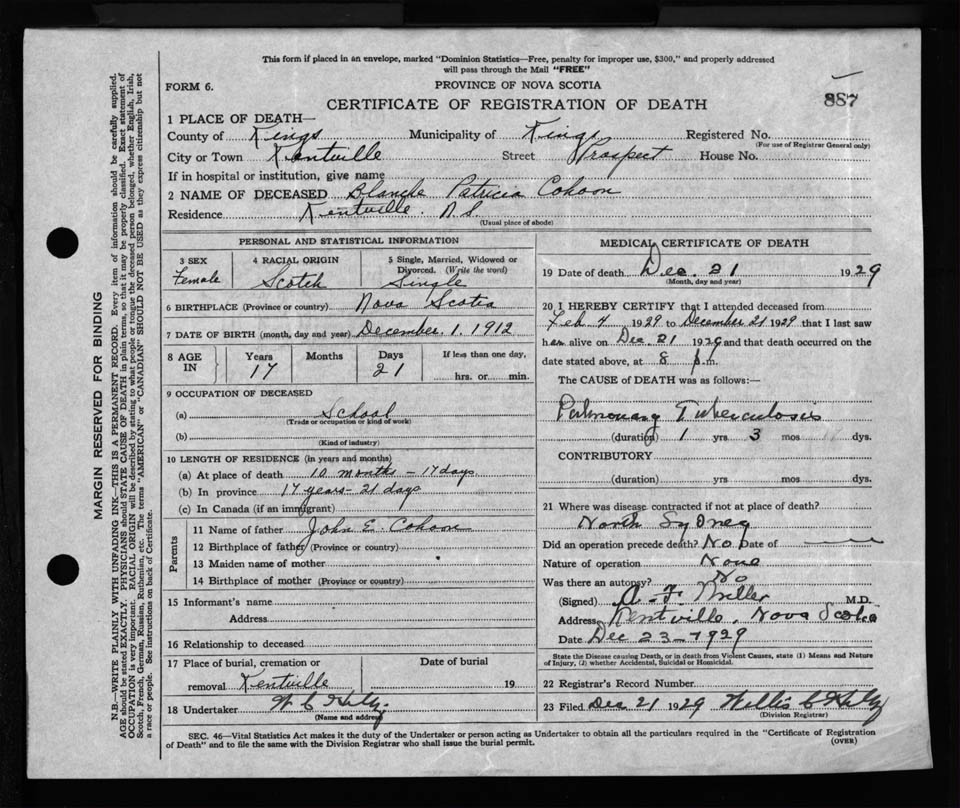 This form if placed in an envelope, marked "Dominion Statistics—Free, penalty for improper use, $300," and properly addressed
will pass through the Mail "FREE"
FORM 6.
PROVINCE OF NOVA SCOTIA
887
CERTIFICATE OF REGISTRATION OF DEATH
1 PLACE OF DEATH—
County of Kings Municipality of Kings Registered No.
(For use of Registrar General only)
City or Town Kentville Street Prospect House No.
If in hospital or institution, give name
2 NAME OF DECEASED Blanche Patricia Cohoon
Residence Kentville. N.S.
(Usual place of abode)
PERSONAL AND STATISTICAL INFORMATION
3 SEX 4 RACIAL ORIGIN 5 Single, Married, Widowed or
Divorced. (Write the word)
Female Scotch Single
6 BIRTHPLACE (Province or country) Nova Scotia
7 DATE OF BIRTH (month, day and year) December. 1. 1912
8 AGE IN Years Months Days If less than one day,
17 21 hrs. or min.
9 OCCUPATION OF DECEASED
(a) School
(Trade or occupation or kind of work)
(b)
(Kind of industry)
10 LENGTH OF RESIDENCE (in years and months)
(a) At place of death 10 months – 17 days
(b) In province 17 years – 21 days
(c) In Canada (if an immigrant)
Parents
11 Name of father John E. Cohoon
12 Birthplace of father (Province or country)
13 Maiden name of mother
14 Birthplace of mother (Province or country)
15 Informant's name
Address
16 Relationship to deceased
17 Place of burial, cremation or Date of burial
removal Kentville 19
18 Undertaker W C
(Name and address)
MEDICAL CERTIFICATE OF DEATH
19 Date of death Dec. 21 1929
(Month, day and year)
20 I HEREBY CERTIFY that I attended deceased from
Feb 4 1929 to December 21 1929 that I last saw
her alive on Dec. 21 1929 and that death occurred on the
date stated above, at 8 p.m.
The CAUSE OF DEATH was as follows:—
Pulmonary Tuberculosis
(duration) 1 yrs 3 mos dys.
CONTRIBUTORY
(duration) yrs mos dys.
21 Where was disease contracted if not at place of death?
North Sydney
Did an operation precede death? No Date of
Nature of operation None
Was there an autopsy? No
(Signed) A. F. Miller M.D.
Address Kentville. Nova Scotia
Date Dec 23–1929
State the Disease causing Death, or in death from Violent Causes, state (1) Means and Nature
of Injury, (2) whether Accidental, Suicidal or Homicidal.
22 Registrar's Record Number
23 Filed Dec 21 1929 Willis C
(Division Registrar)
SEC. 46—Vital Statistics Act makes it the duty of the Undertaker or person acting as Undertaker to obtain all the particulars required in the "Certificate of Registration
of Death" and to file the same with the Division Registrar who shall issue the burial permit.
(OVER)
MARGIN RESERVED FOR BINDING
N.B.—WRITE PLAINLY WITH UNFADING INK—THIS IS A PERMANENT RECORD. Every item of information should be carefully supplied.
AGE should be stated EXACTLY. PHYSICIANS should STATE CAUSE OF DEATH in plain terms, so that it may be properly classified. Exact statement of
OCCUPATION is very important. RACIAL ORIGIN will be described by stating to what people or tongue the deceased person belonged, whether English, Irish,
Scotch, French, German, Russian, Ruthenian, etc. The terms "AMERICAN" or "CANADIAN" SHOULD NOT BE USED as they express citizenship but not
a race or people. See instructions on back of Certificate.